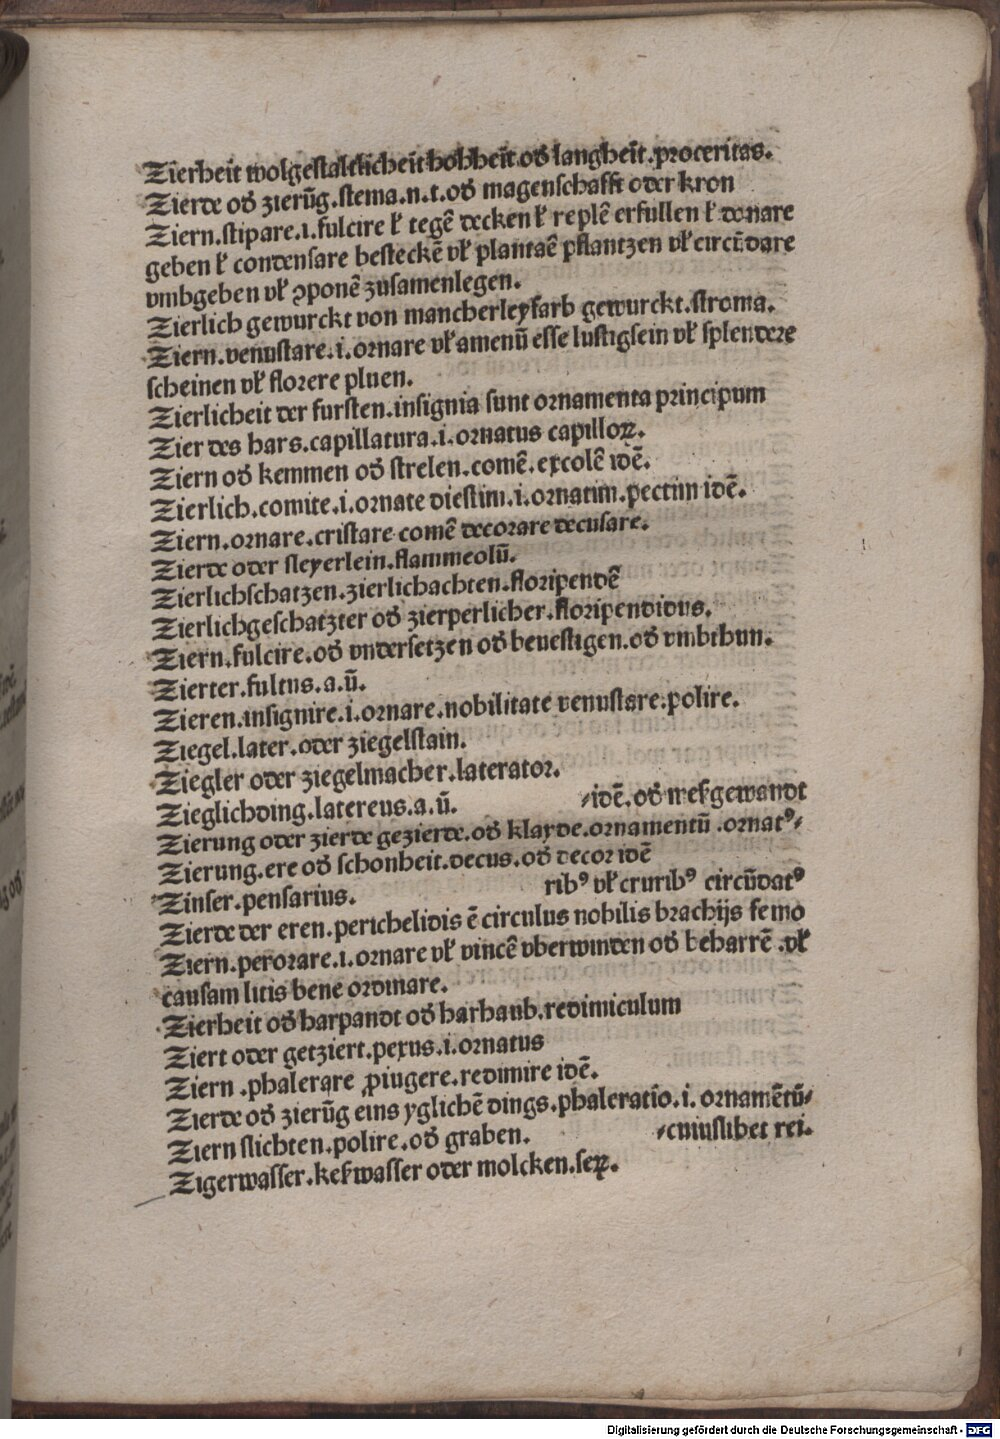 Zierheit wolgestaltlicheit hohheit od̄ langheit.proceritas.
Zierde od̄ zierūg.stema.n.t.od̄ magenschafft oder kron
Ziern.stipare.i.fulcire ł tegē decken ł replē erfullen ł donare
geben ł condensare besteckē vł plantaē pflantzen vł circūdare
vmbgeben vł ꝯponē zusamenlegen.
Zierlich gewurckt von mancherleyfarb gewurckt.stroma.
Ziern.venustare.i.ornare vł amenū esse lustigsein vł splendere
scheinen vł florere pluen.
Zierlicheit der fursten.insignia sunt ornamenta principum
Zier des hars.capillatura.i.ornatus capilloꝝ.
Ziern od̄ kemmen od̄ strelen.comē.excolē idē.
Zierlich.comite.i.ornate diestim.i.ornatim.pectim idē.
Ziern.ornare.cristare comē decorare decusare.
Zierde oder sleyerlein.flammeolū.
Zierlichschatzen.zierlichachten.floripendē
Zierlichgeschatzter od̄ zierperlicher.floripendidus.
Ziern.fulcire.od̄ vndersetzen od̄ beuestigen.od̄ vmbthun.
Zierter.fultus.a.ū.
Zieren.insignire.i.ornare.nobilitate venustare.polire.
Ziegel.later.oder ziegelstain.
Ziegler oder ziegelmacher.laterator.
Zieglichding.latereus.a.ū. ⸗idē.od̄ weßgewandt
Zierung oder zierde gezierde.od̄ klayde.ornamentū .ornatꝰ⸗
Zierung.ere od̄ schonheit.decus.od̄ decor idē
Zinser.pensarius. ribꝰ vł cruribꝰ circūdatꝰ
Zierde der eren.perichelidis ē circulus nobilis brachijs femo
Ziern.perorare.i.ornare vł vincē vberwinden od̄ beharrē .vł
causam litis bene ordinare.
Zierheit od̄ harpandt od̄ harhaub.redimiculum
Ziert oder getziert.pexus.i.ornatus
Ziern .phalerare ꝓiugere.redimire idē.
Zierde od̄ zierūg eins yglichē dings.phaleratio.i. ornamētū⸗
Ziern slichten.polire.od̄ graben. ⸗cuiuslibet rei.
Zigerwasser.keßwasser oder molcken.seꝝ.
Digitalisierung gefördert durch die Deutsche Forschungsgemeinschaft - DFG